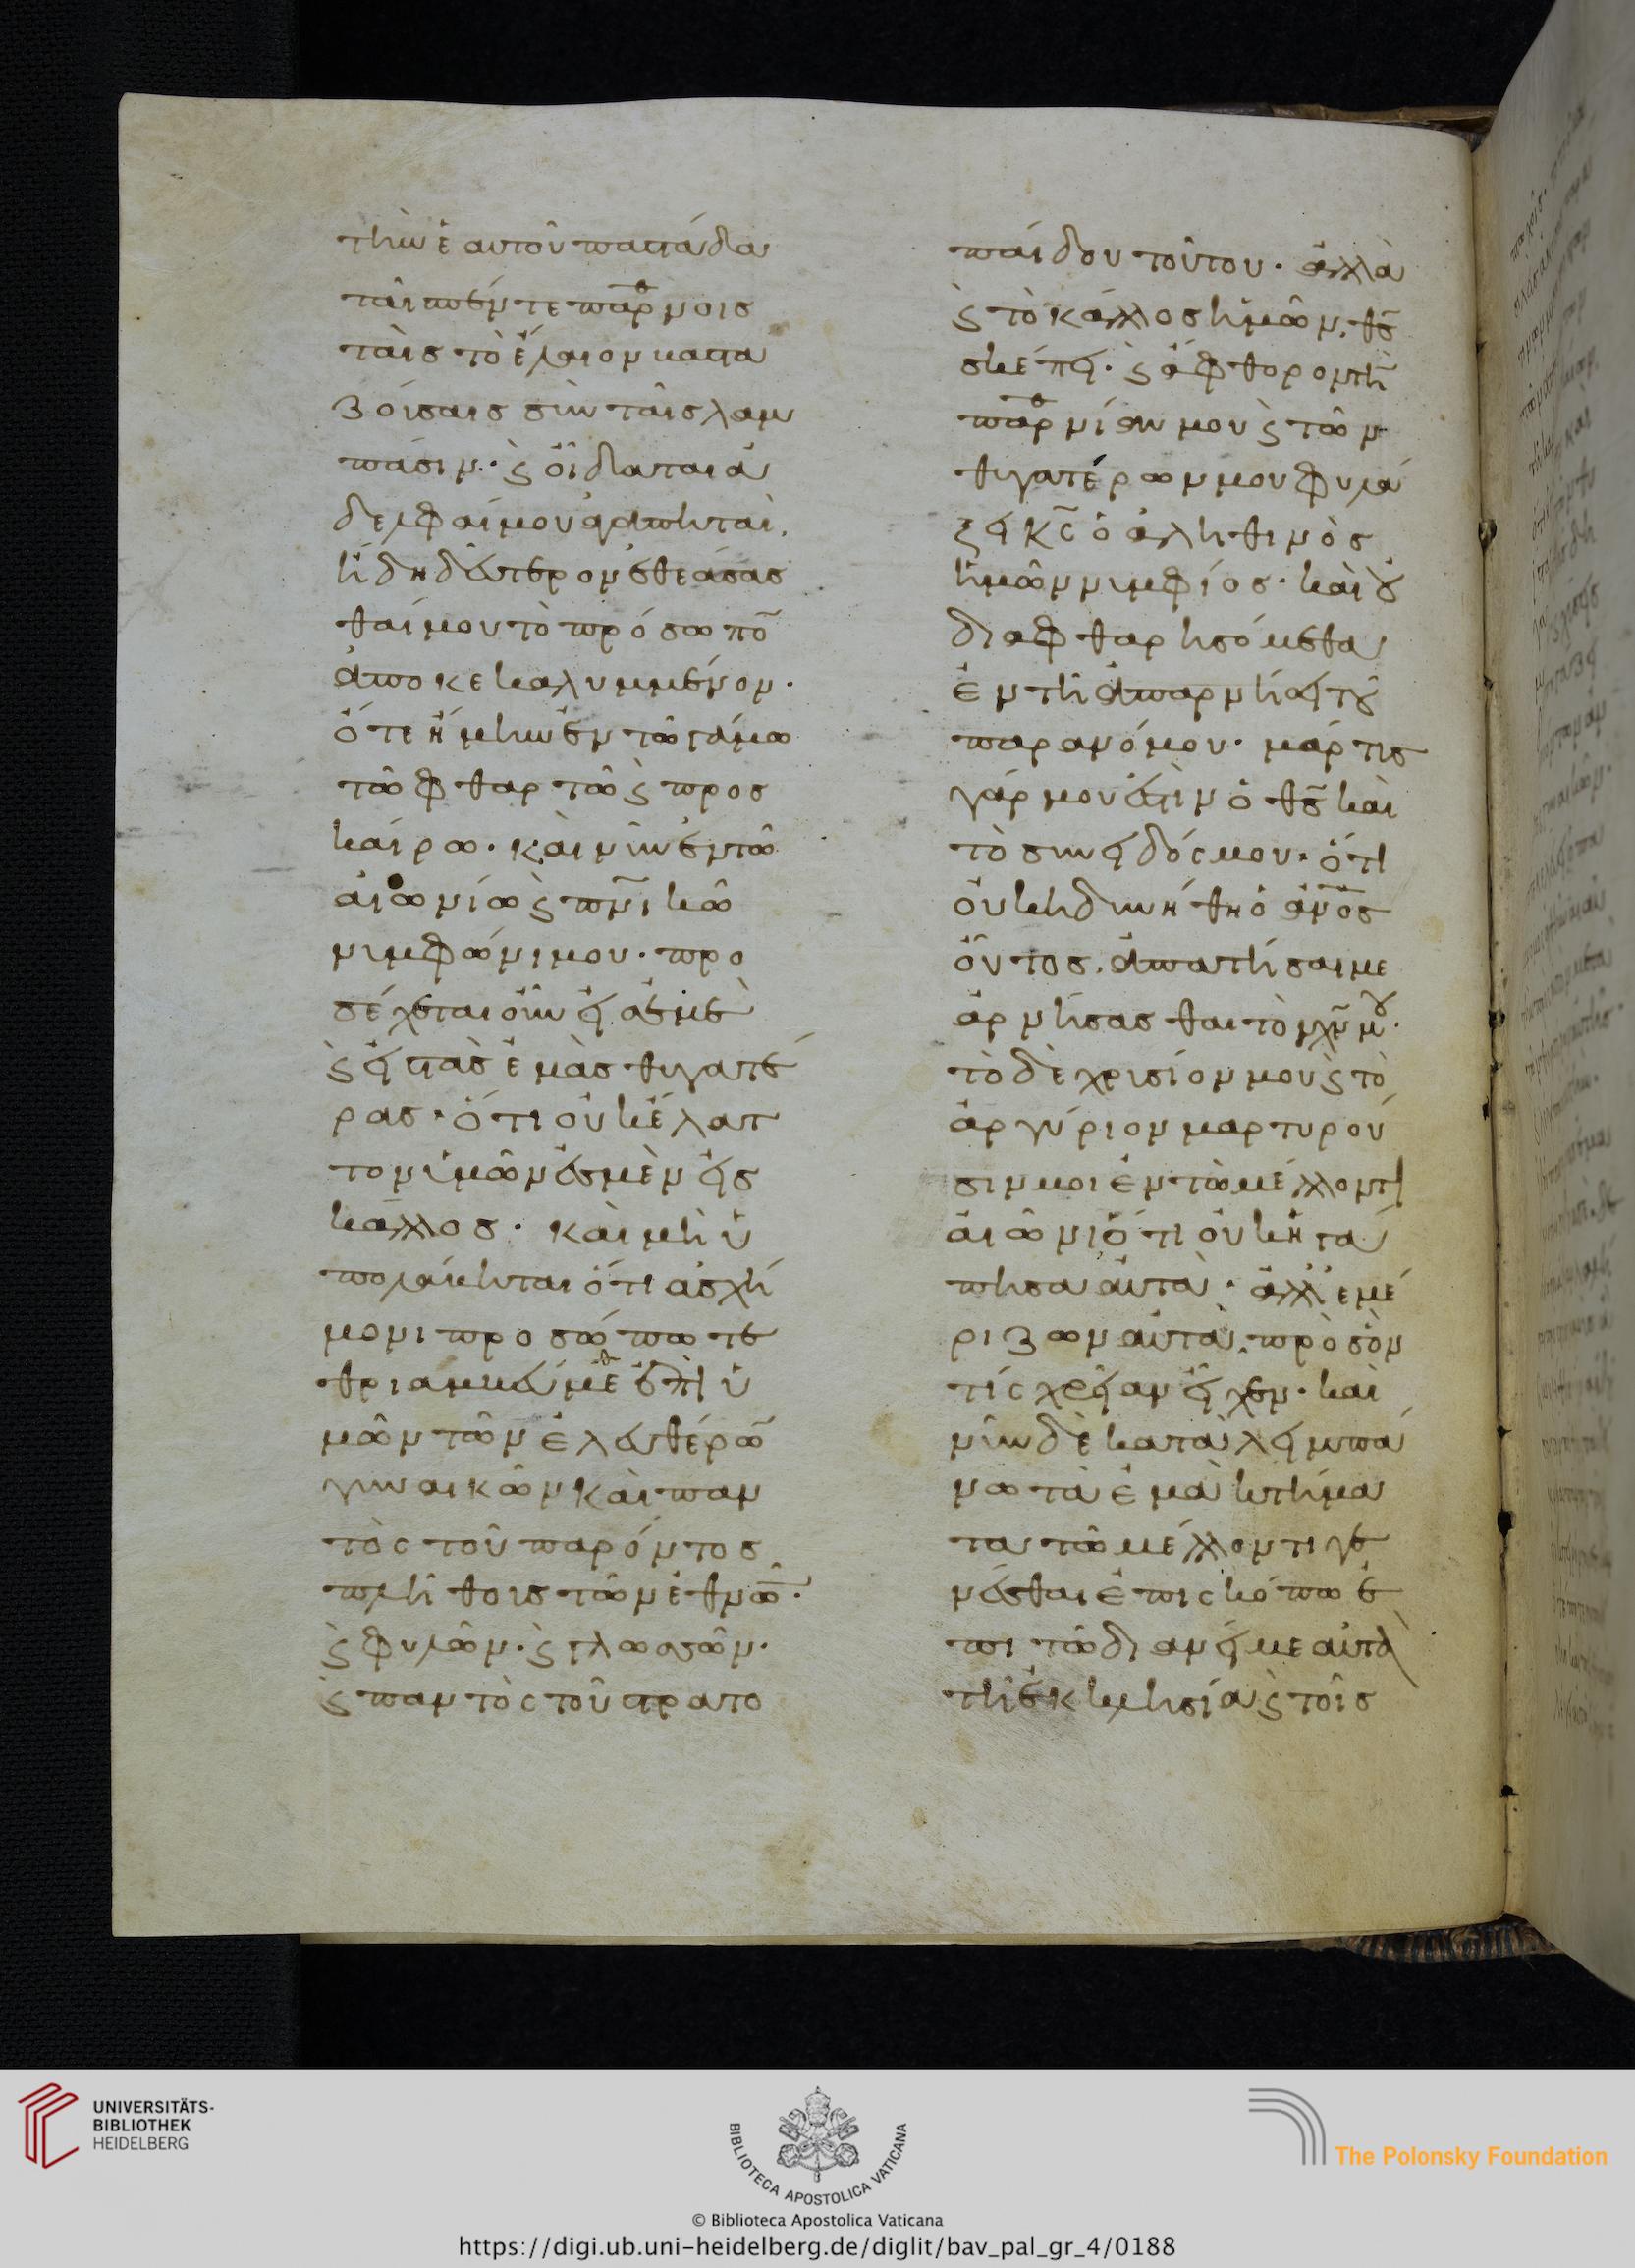 τὴν ἑαυτοῦ παστάδα
ταῖς πέντε παρθένοις
ταῖς τὸ ἔλαιον βαστα
ζούσαις σὺν ταῖς λαμ
πάσιν· καὶ οἴδατε ἀ
δελφαί μου ἀγαπηταί,
ἤδη δεύτερον ἐθεάσασ
θαί μου τὸ πρόσωπον
ἀποκεκαλυμμένον·
ὅτε ἤμην ἐν τῷ γάμῳ
τῷ φθαρτῷ καὶ προσ
καίρῳ· καὶ νῦν ἐν τῷ
αἰωνίῳ καὶ πνικῷ
νυμφῶνι μου· προ
σέχεται οὖν εἰς ἐμὲ
καὶ εἰς τὰς ἐμὰς θυγατέ
ρας· ὅτι οὐκ ἔλατ
τον ὑμῶν ἐσμὲν εἰς
κάλλος· καὶ μὴ ὑ
πολάβηται ὅτι ἀσχή
μονι προσώπω τε
θριάμβευμεθα ἐπὶ ὑ
μῶν τῶν ἐλευθέρων
γυναικῶν καὶ παν
τὸς τοῦ παρόντος
πλήθους τῶν ἐθνῶν·
καὶ φυλῶν· καὶ γλωσσῶν·
καὶ παντὸς τοῦ στρατο
παίδου τούτου· ἀλλὰ
καὶ τὸ κάλλος ἡμῶν, θς
σκέπει· καὶ ἄφθορον τὴν
παρθενίαν μου καὶ τῶν
θυγατέρων μου φυλά
ξει κς ὁ ἀληθινὸς
ἡμῶν νυμφίος· καὶ οὐ
διαφθαρησόμεθα
ἐν τῇ ἀπαρνήσει τοῦ
παρανόμου· μάρτυς
γάρ μου ἐστὶν ὁ θς καὶ
τὸ συνειδός μου· ὅτι
οὐκ ἠδυνήθη ὁ ἀνος
οὗτος, ἀπατῆσαι με
ἀρνήσασθαι τὸν χν μου·
τὸ δὲ χρυσίον μου καὶ τὸ
ἀργύριον μαρτυροῦ
σιν μοι ἐν τῷ μέλλοντι
αἰῶνι ὅτι οὐκ ἠγά
πησα αὐτά· ἀλλ' ἐμέ
ριζων αὐτὰ, πρὸς ὃν
τίς χρείαν εἶχεν· καὶ
νῦν δὲ καταλιμπά
νω τὰ ἐμὰ κτήμα
τα τῷ μέλλοντι γε
νέσθαι ἐπισκόπω ἐ
πὶ τῷ διανεῖμε αὐτὰ
τῇ ἐκκλησίᾳ καὶ τοῖς
UNIVERSITÄTS-
BIBLIOTHEK
HEIDELBERG
BIBLIOTECA APOSTOLICA VATICANA
The Polonsky Foundation
© Biblioteca Apostolica Vaticana
https://digi.ub.uni-heidelberg.de/diglit/bav_pal_gr_4/0188